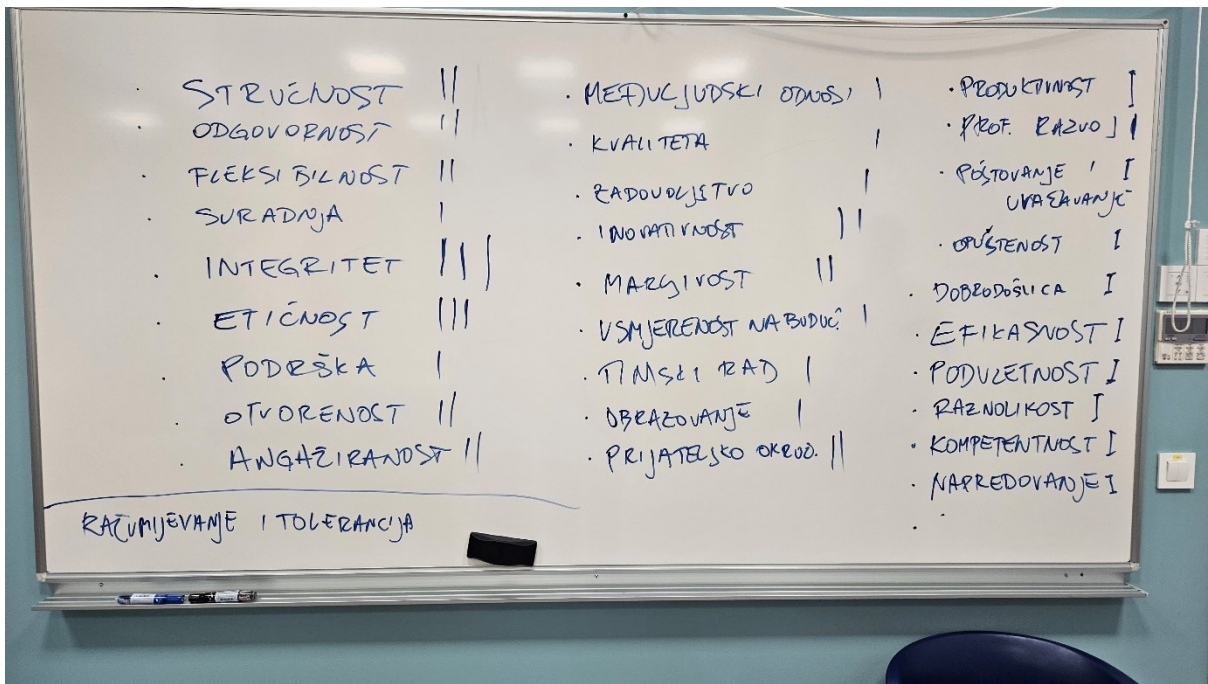 · STRUČNOST ||
· ODGOVORNOST ||
· FLEKSIBILNOST ||
· SURADNJA |
· INTEGRITET |||
· ETIČNOST |||
· PODRŠKA |
· OTVORENOST ||
· ANGAŽIRANOST ||
RAZUMIJEVANJE I TOLERANCIJA
· MEĐULJUDSKI ODNOSI |
· KVALITETA |
· ZADOVOLJSTVO |
· INOVATIVNOST ||
· MARLJIVOST ||
· USMJERENOST NA BUDUĆ. |
· TIMSKI RAD |
· OBRAZOVANJE |
· PRIJATELJSKO OKRUŽ. ||
· PRODUKTIVNOST I
· PROF. RAZVOJ I
· POŠTOVANJE I I
UVAŽAVANJE
· OPUŠTENOST I
· DOBRODOŠLICA I
· EFIKASNOST I
· PODUZETNOST I
· RAZNOLIKOST I
· KOMPETENTNOST I
· NAPREDOVANJE I